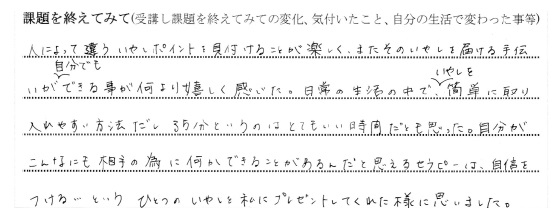 課題を終えてみて(受講し課題を終えてみての変化、気付いたこと、自分の生活で変わった事等)
人によって違う いやしポイントを見付けることが楽しく、またそのいやしを届ける手伝
自分でも いやしを
いができる事が何より嬉しく感じた。日常の生活の中で、簡単に取り
入れやすい方法だし 35分というのは とてもいい時間だとも思った。自分が
こんなにも相手の為に何かできることがあるんだと思えるセラピーは、自信を
つける… という ひとつの いやしを 私に プレゼントしてくれた様に思いました。